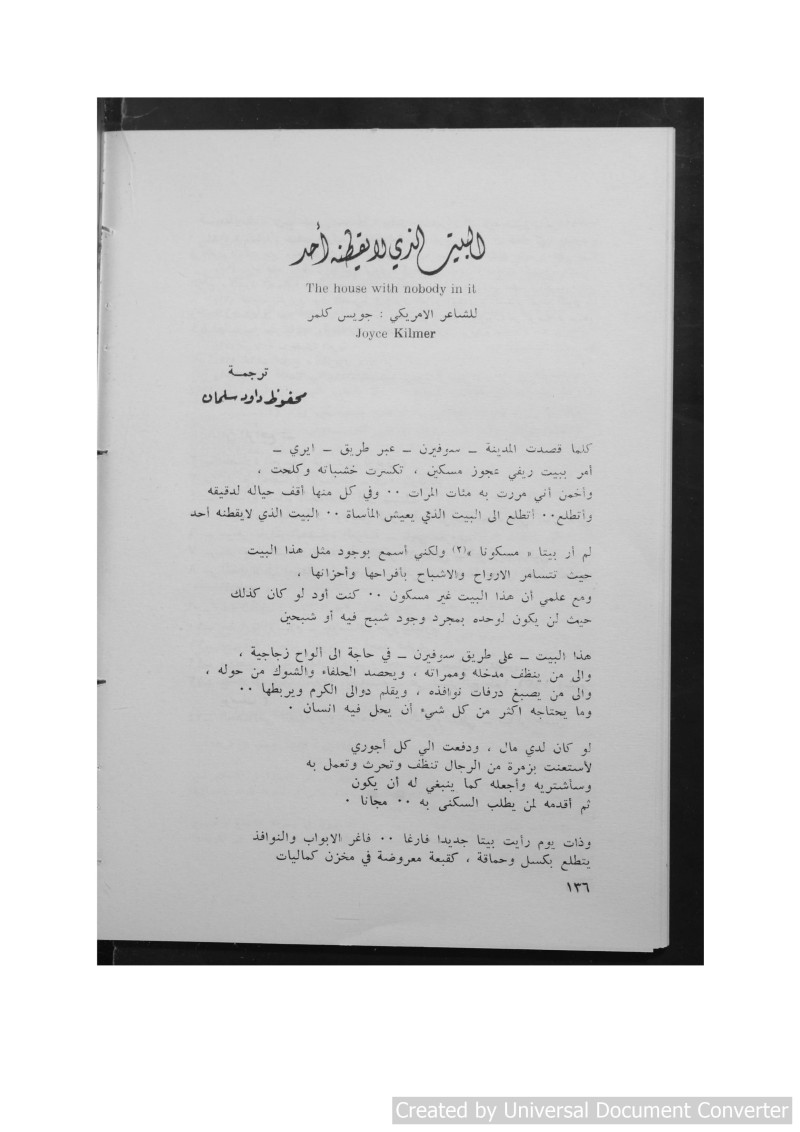 البيت الذي لا يقطنه أحد
The house with nobody in it
للشاعر الامريكي : جويس كلمر
Joyce Kilmer
ترجمـــة
محفوظ داود سلمان
كلما قصدت المدينة ــ سوفيرن ــ عبر طريق ــ ايري ــ
أمر ببيت ريفي عجوز مسكين ، تكسرت خشباته وكلحت ،
وأخمن أني مررت به مئات المرات ٠٠ وفي كل منها أقف حياله لدقيقه
وأتطلع٠٠ أتطلع الى البيت الذي يعيش المأساة ٠٠ البيت الذي لايقطنه أحد
لم أر بيتا « مسكونا »(٢) ولكني أسمع بوجود مثل هذا البيت
حيث تتسامر الارواح والاشباح بأفراحها وأحزانها ٠
ومع علمي أن هذا البيت غير مسكون ٠٠ كنت أود لو كان كذلك
حيث لن يكون لوحده بمجرد وجود شبح فيه أو شبحين
هذا البيت ــ على طريق سوفيرن ــ في حاجة الى ألواح زجاجية ،
والى من ينظف مدخله وممراته ، ويحصد الحلفاء والشوك من حوله ،
والى من يصبغ درفات نوافذه ، ويقلم دوالى الكرم ويربطها ٠٠
وما يحتاجه اكثر من كل شيء أن يحل فيه انسان ٠
لو كان لدي مال ، ودفعت الي كل أجوري
لأستعنت بزمرة من الرجال تنظف وتحرث وتعمل به
وسأشتريه وأجعله كما ينبغي له أن يكون
ثم أقدمه لمن يطلب السكنى به ٠٠ مجانا ٠
وذات يوم رأيت بيتا جديدا فارغا ٠٠ فاغر الابواب والنوافذ
يتطلع بكسل وحماقة ، كقبعة معروضة في مخزن كماليات
١٣٦
Created by Universal Document Converter